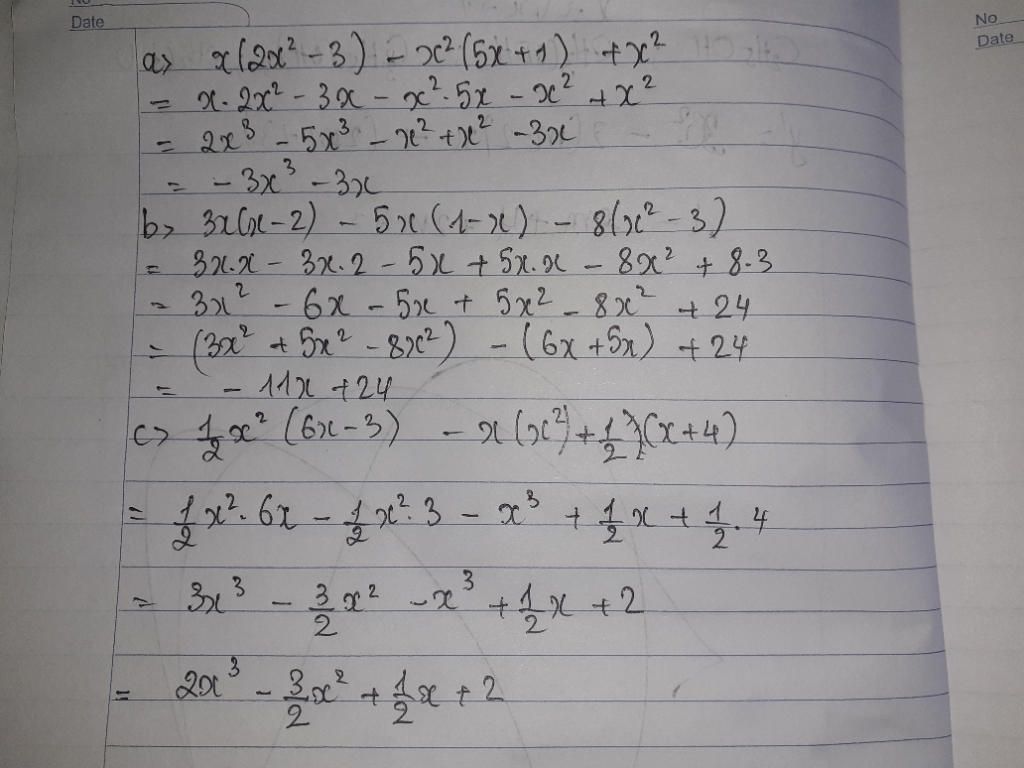 No
Date
No
Date
a> x(2x² - 3) - x²(5x+1) + x²
= x·2x² - 3x - x²·5x - x² + x²
= 2x³ - 5x³ - x² + x² - 3x
= - 3x³ - 3x
b> 3x(x-2) - 5x(1-x) - 8(x² - 3)
= 3x.x - 3x.2 - 5x + 5x.x - 8x² + 8.3
= 3x² - 6x - 5x + 5x² - 8x² + 24
= (3x² + 5x² - 8x²) - (6x + 5x) + 24
= - 11x + 24
c> 1/2 x² (6x - 3) - x(x²) + 1/2 (x+4)
= 1/2 x²· 6x - 1/2 x²· 3 - x³ + 1/2 x + 1/2 . 4
= 3x³ - 3/2 x² - x³ + 1/2 x + 2
= 2x³ - 3/2 x² + 1/2 x + 2